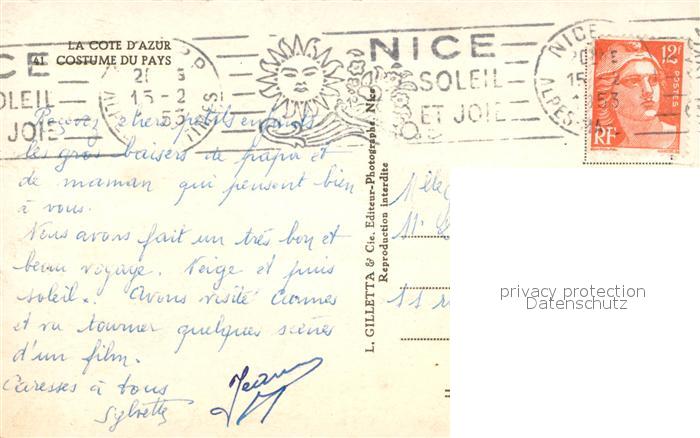 LA COTE D'AZUR
41 COSTUME DU PAYS
NICE
SOLEIL
ET JOIE
NICE
15-2
53
ALPES-MARITIMES
NICE
SOLEIL
ET JOIE
NICE
15-2
1953
ALPES-MA
12F
POSTES
RF
Recevez chers petits enfants
les gros baisers de papa et
de maman qui pensent bien
à vous.
Nous avons fait un très bon et
beau voyage. Neige et puis
soleil. Avons visité Cannes
et vu tourner quelques scènes
d'un film.
Caresses à tous
Sylvette
L. GILLETTA & Cie. Editeur-Photographe, Nice
Reproduction interdite
privacy protection
Datenschutz